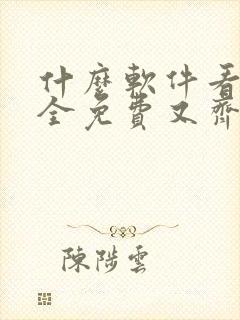 什麼軟件看
全免費又齊
陳陟雲